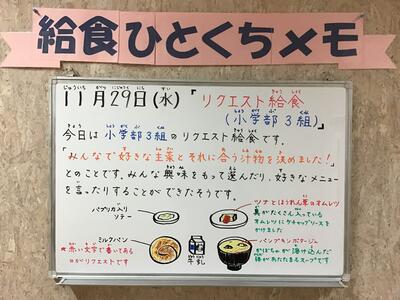 給食ひとくちメモ
11月29日(水)
じゅういち がつ にじゅうく にち すい
『リクエスト給食
(小学部3組)
今日は小学部3組のリクエスト給食です。
「みんなで好きな主菜とそれに合う汁物を決めました!」
とのことです。みんな興味をもって選んだり、好きなメニュー
を言ったりすることができたそうです。
パプリカ入り
ソテー
ツナとほうれん草のオムレツ
具がたくさん入っている
オムレツにケチャップソースを
かけました
ミルクパン
※赤い文字で書いてある
のがリクエストです
牛乳
パンプキンポタージュ
かぼちゃが溶け込んだ
体があたたまるスープです